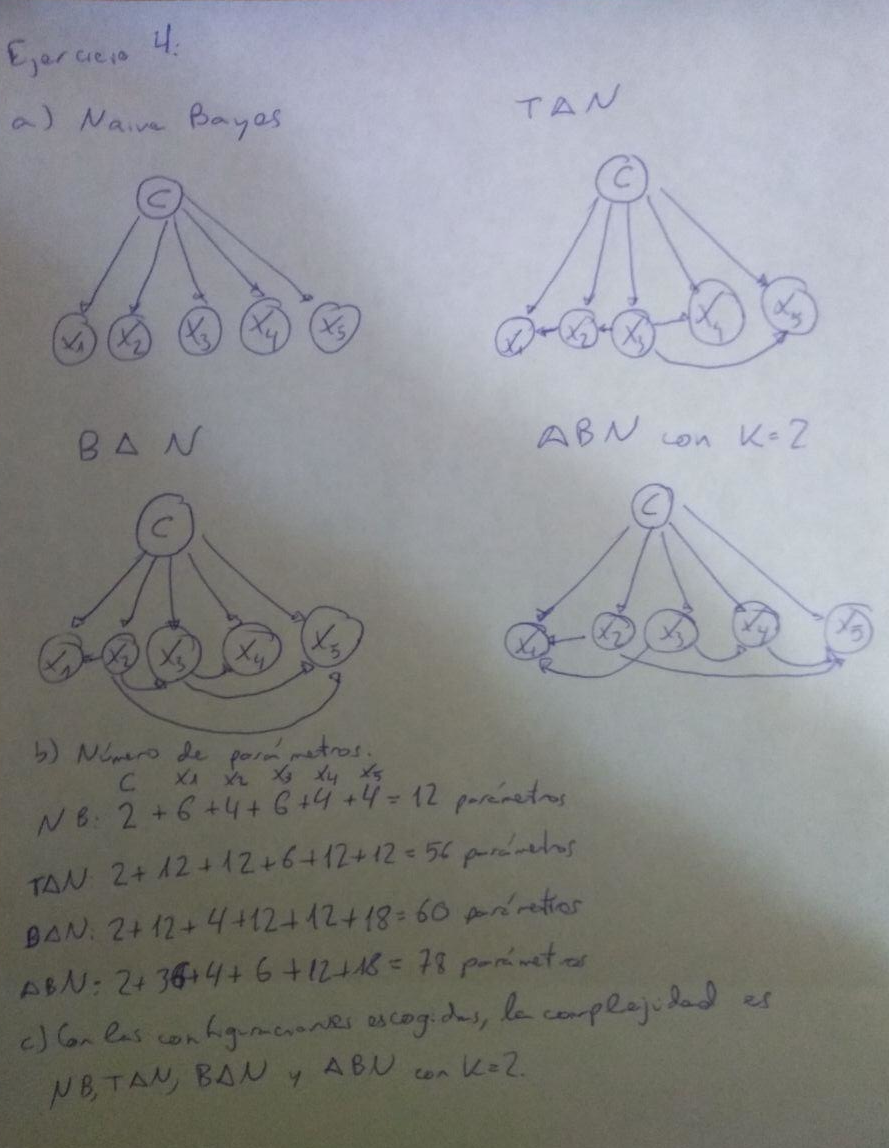 Ejercicio 4:
a) Naive Bayes
TAN
C
X1 X2 X3 X4 X5
C
X1 X2 X3 X4 X5
BAN
ABN con K=2
C
X1 X2 X3 X4 X5
C
X1 X2 X3 X4 X5
b) Número de parámetros.
C X1 X2 X3 X4 X5
NB: 2+6+4+6+4+4=12 parámetros
TAN 2+12+12+6+12+12=56 parámetros
BAN: 2+12+4+12+12+18=60 parámetros
ABN: 2+36+4+6+12+18=78 parámetros
c) Con las configuraciones escogidas, la complejidad es
NB, TAN, BAN y ABN con K=2.